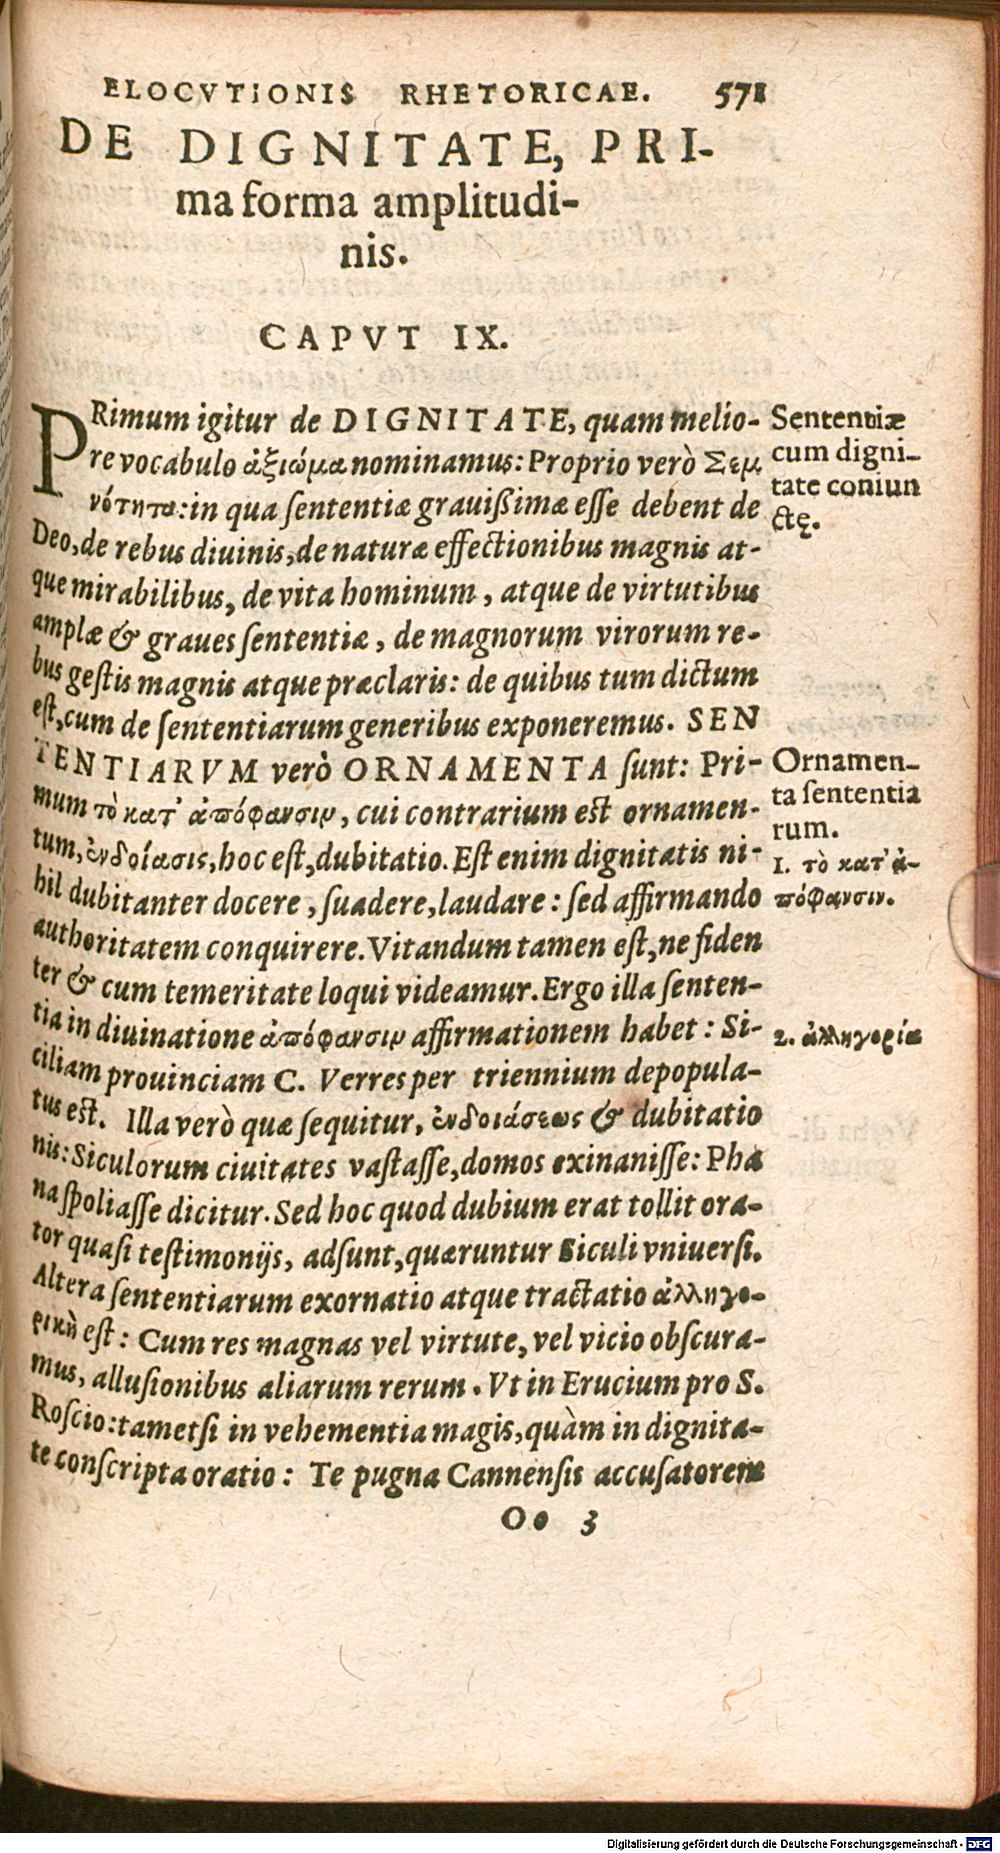 ELOCVTIONIS RHETORICAE. 571
DE DIGNITATE, PRI-
ma forma amplitudi-
nis.
CAPVT IX.
PRimum igitur de DIGNITATE, quam melio-
re vocabulo ἀξιώμα nominamus: Proprio verò Σεμ
νότητα: in qua ſententiæ grauißimæ eſſe debent de
Deo, de rebus diuinis, de naturæ effectionibus magnis at-
que mirabilibus, de vita hominum, atque de virtutibus
amplæ & graues ſententiæ, de magnorum virorum re-
bus geſtis magnis atque præclaris: de quibus tum dictum
eſt, cum de ſententiarum generibus exponeremus. SEN
TENTIARVM verò ORNAMENTA ſunt: Pri-
mum τὸ κατ' ἀπόφανσιν, cui contrarium est ornamen-
tum, ἐνδοίασις, hoc eſt, dubitatio. Eſt enim dignitatis ni-
hil dubitanter docere, ſuadere, laudare: ſed affirmando
authoritatem conquirere. Vitandum tamen eſt, ne fiden
ter & cum temeritate loqui videamur. Ergo illa ſenten-
tia in diuinatione ἀπόφανσιν affirmationem habet: Si-
ciliam prouinciam C. Verres per triennium depopula-
tus est. Illa verò quæ ſequitur, ἐνδοιάσεως & dubitatio
nis: Siculorum ciuitates vaſtaſſe, domos exinaniſſe: Pha
na ſpoliaſſe dicitur. Sed hoc quod dubium erat tollit ora-
tor quaſi teſtimonijs, adſunt, quæruntur Siculi vniuerſi.
Altera ſententiarum exornatio atque tractatio ἀλληγο-
ρικὴ eſt: Cum res magnas vel virtute, vel vicio obſcura-
mus, alluſionibus aliarum rerum. Vt in Erucium pro S.
Roſcio: tametſi in vehementia magis, quàm in dignita-
te conſcripta oratio: Te pugna Cannenſis accuſatorem
Oo 3
Sententiæ
cum digni-
tate coniun
ctę.
Ornamen-
ta ſententia
rum.
1. τὸ κατ' ἀ-
πόφανσιν.
2. ἀλληγορία
Digitalisierung gefördert durch die Deutsche Forschungsgemeinschaft - DFG